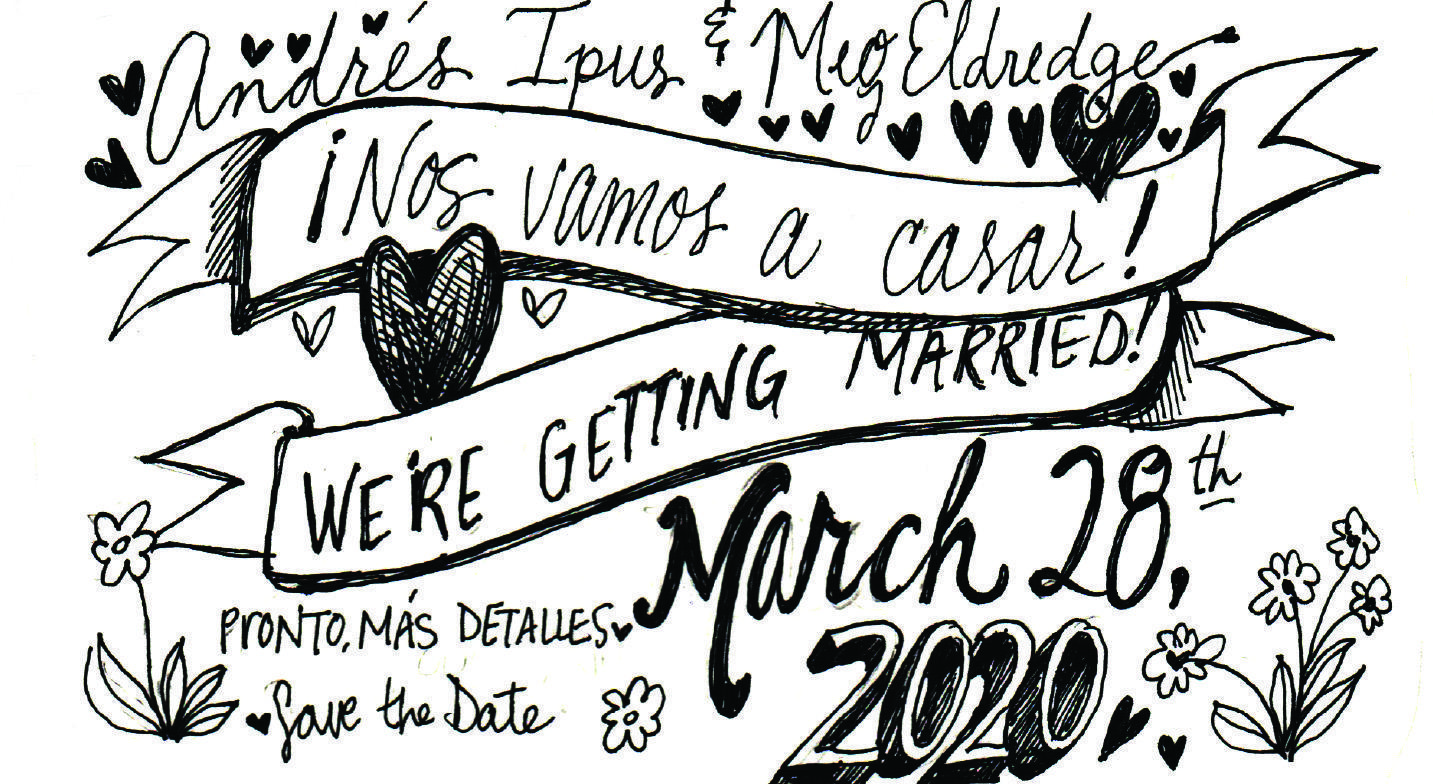 Andrés Ipus & Meg Eldredge
¡Nos vamos a casar!
WE'RE GETTING MARRIED!
March 28th,
2020
PRONTO, MÁS DETALLES
Save the Date